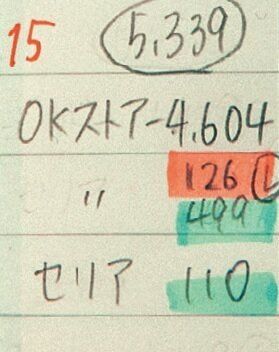 15 5,339
OKストアー4,604
〃 126 ①
499
セリア 110